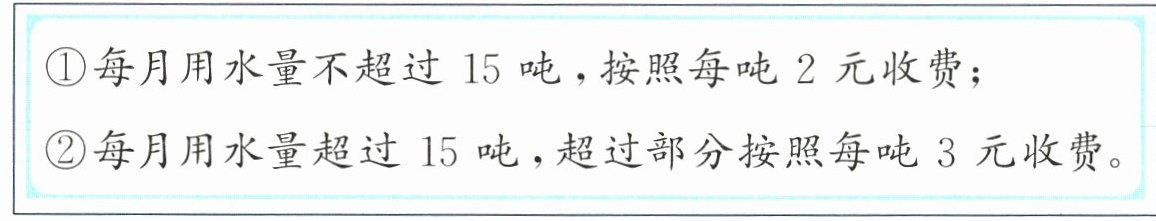 ①每月用水量不超过 15 吨，按照每吨 2 元收费；
②每月用水量超过 15 吨，超过部分按照每吨 3 元收费。